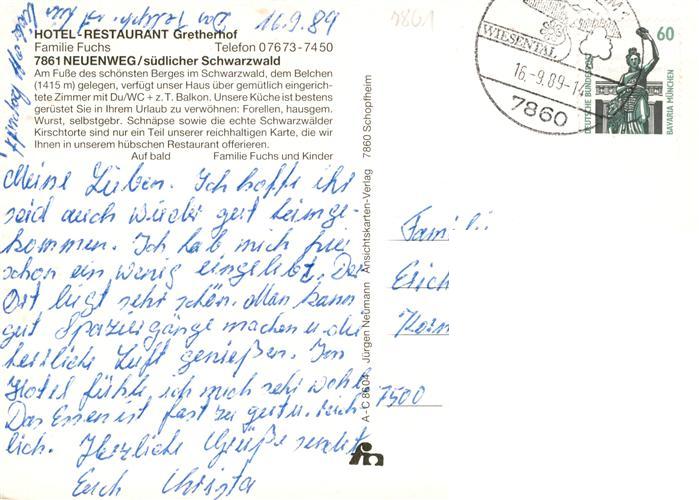 16.9.89
7861
HOTEL-RESTAURANT Gretherhof
Familie Fuchs Telefon 07673-7450
7861 NEUENWEG/südlicher Schwarzwald
Am Fuße des schönsten Berges im Schwarzwald, dem Belchen
(1415 m) gelegen, verfügt unser Haus über gemütlich eingerich-
tete Zimmer mit Du/WC + z.T. Balkon. Unsere Küche ist bestens
gerüstet Sie in Ihrem Urlaub zu verwöhnen: Forellen, hausgem.
Wurst, selbstgebr. Schnäpse sowie die echte Schwarzwälder
Kirschtorte sind nur ein Teil unserer reichhaltigen Karte, die wir
Ihnen in unserem hübschen Restaurant offerieren.
Auf bald Familie Fuchs und Kinder
Meine Lieben. Ich hoffe ihr
seid auch wieder gut heimge-
kommen. Ich hab mich hier
schon ein wenig eingelebt. Der
Ort liegt sehr schön. Man kann
gut Spaziergänge machen u. die
herrliche Luft genießen. Im
Hotel fühle ich mich sehr wohl
Das Essen ist fast zu gut u. reich
lich. Herzliche Grüße sendet
Euch Christa
A-C 8604 Jürgen Neumann Ansichtskarten-Verlag 7860 Schopfheim
WIESENTAL
16.-9.89-1
7860
60
DEUTSCHE BUNDESPOST
BAVARIA MÜNCHEN
Erich
7500